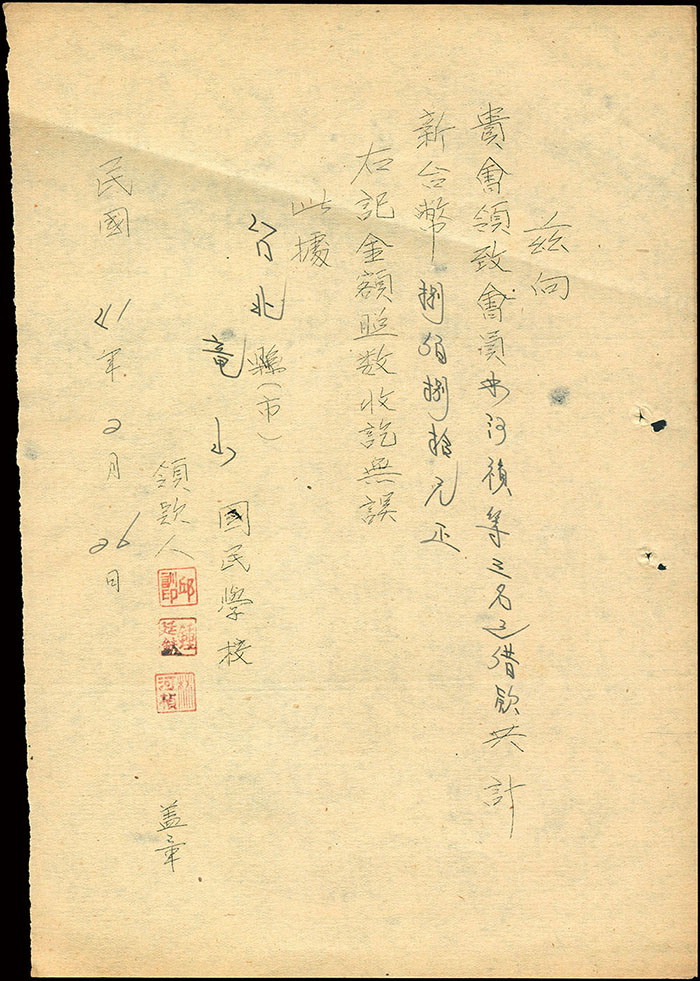 茲向
貴會領致會員 河禎等三名之借欵共計
新台幣捌佰捌拾元正
右記金額照数收訖無誤
此據
台北縣(市)
竜山國民學校
領欵人 邱 鍾 河楨 盖章
民國41年2月26日